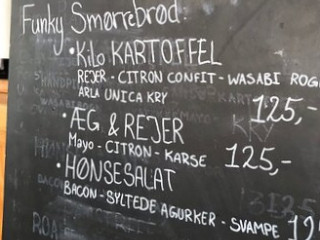 Funky Smørrebrød:
• Kilo KARTOFFEL
REJER - CITRON CONFIT - WASABI ROG
ARLA UNICA KRY
125,-
• ÆG & REJER
Mayo - CITRON - KARSE 125,-
• HØNSESALAT
BACON - SYLTEDE AGURKER - SVAMPE 12